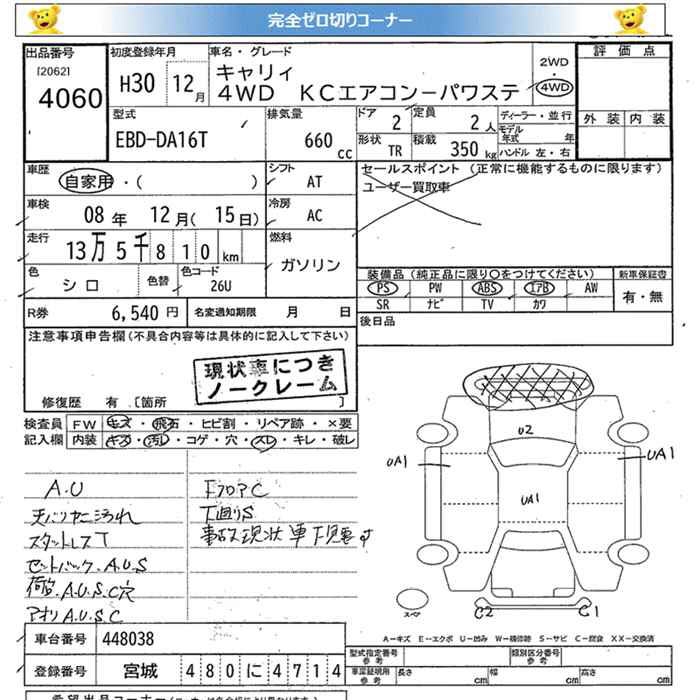 完全ゼロ切りコーナー
出品番号
[2062]
4060
初度登録年月
H30 12月
車名・グレード
キャリィ
4WD KCエアコンーパワステ
2WD
・
4WD
評価点
外装 内装
型式
EBD-DA16T
排気量
660 cc
ドア 2
定員 2人
形状 TR
積載 350 kg
ディーラー・並行
モデル年式 年
ハンドル 左・右
車歴
自家用・( )
シフト
AT
セールスポイント (正常に機能するものに限ります)
ユーザー買取車
車検
08年 12月(15日)
冷房
AC
走行
13万5千810km
燃料
ガソリン
色
シロ
色替
色コード
26U
装備品 (純正品に限り〇をつけてください)
新車保証書
PS PW ABS エアB AW
SR ナビ TV カワ
有・無
R券 6,540円 名変通知期限 月 日
後日品
注意事項申告欄 (不具合内容等は具体的に記入して下さい)
現状車につき
ノークレーム
修復歴 有 [箇所 ]
検査員 FW キズ・飛石・ヒビ割・リペア跡・×要
記入欄 内装 キズ・汚レ・コゲ・穴・スレ・キレ・破レ
A.U
天バリヤニ汚れ
スタットレスT
ゼットバック.A.U.S
荷台.A.U.S.C穴
アオリA.U.S.C
FフロアC
下廻りS
事故現状車下見要す
U2
UA1
UA1
UA1
C2
C1
スペア
A－キズ E－エクボ U－凹み W－補修跡 S－サビ C－腐食 XX－交換済
車台番号 448038
登録番号 宮城 480に4714
型式指定番号
参考
類別区分番号
参考
車庫証明用
参考
長さ cm
幅 cm
高さ cm